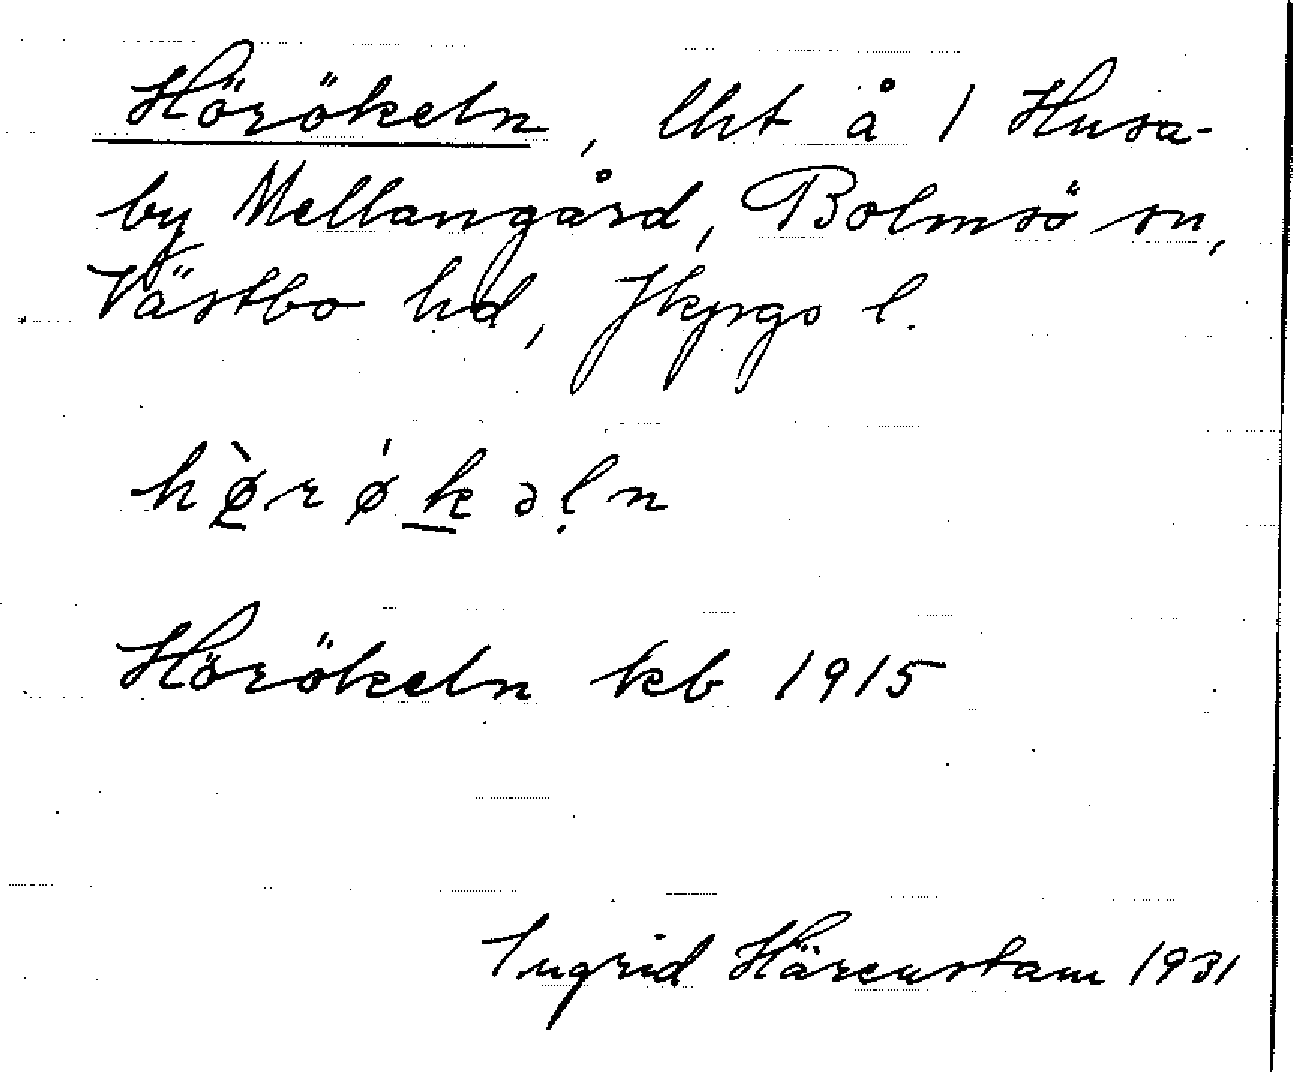 Hörökeln, lht å 1 Husa-
by Mellangård, Bolmsö sn,
Västbo hd, Jkpgs l.
hø̱̀rǿḵəḷn
Hörökeln kb 1915
Ingrid Härenstam 1931